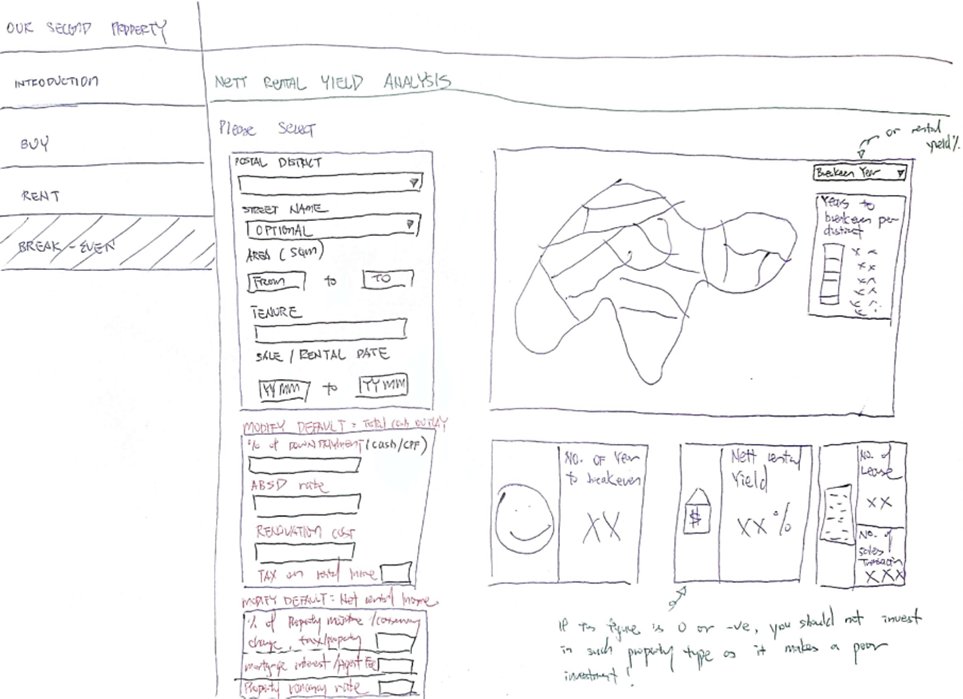 OUR SECOND PROPERTY
INTRODUCTION
BUY
RENT
BREAK-EVEN
NETT RENTAL YIELD ANALYSIS
Please Select
POSTAL DISTRICT
STREET NAME
OPTIONAL
AREA (Sqm)
From to TO
TENURE
SALE / RENTAL DATE
YYMM to YYMM
MODIFY DEFAULT = Total Cash OUTLAY
% of DOWNPAYMENT (cash/CPF)
ABSD rate
RENOVATION COST
TAX on rental Income
MODIFY DEFAULT = Net rental Income
% of Property
charge, tax/property
mortgage interest / Agent Fee
Property vacancy rate
or rental
yield%.
Breakeven Year
Years to
breakeven per
district
XX
XX
XX
XX
XX
No. OF Year
to breakeven
XX
Nett rental
Yield
$
XX %
No. of
Lease
XX
No. of
Sales
Transaction
XXX
If this figure is 0 or -ve, you should not invest
in such property type as it makes a poor
investment!